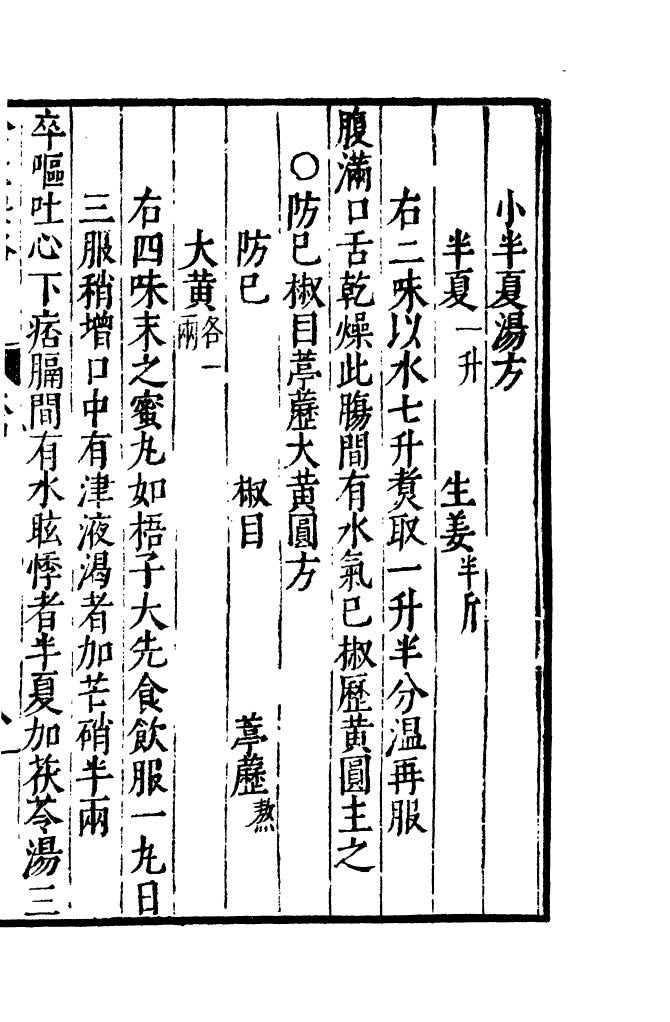 小半夏湯方
半夏一升　生姜半斤
右二味以水七升煑取一升半分溫再服
腹滿口舌乾燥此腸間有水氣已椒歷黃圓主之
〇防已椒目葶藶大黃圓方
防已　椒目　葶藶熬
大黃各一兩
右四味末之蜜九如梧子大先食飲服一九日
三服稍增口中有津液渴者加芒硝半兩
卒嘔吐心下痞膈間有水眩悸者半夏加茯苓湯三